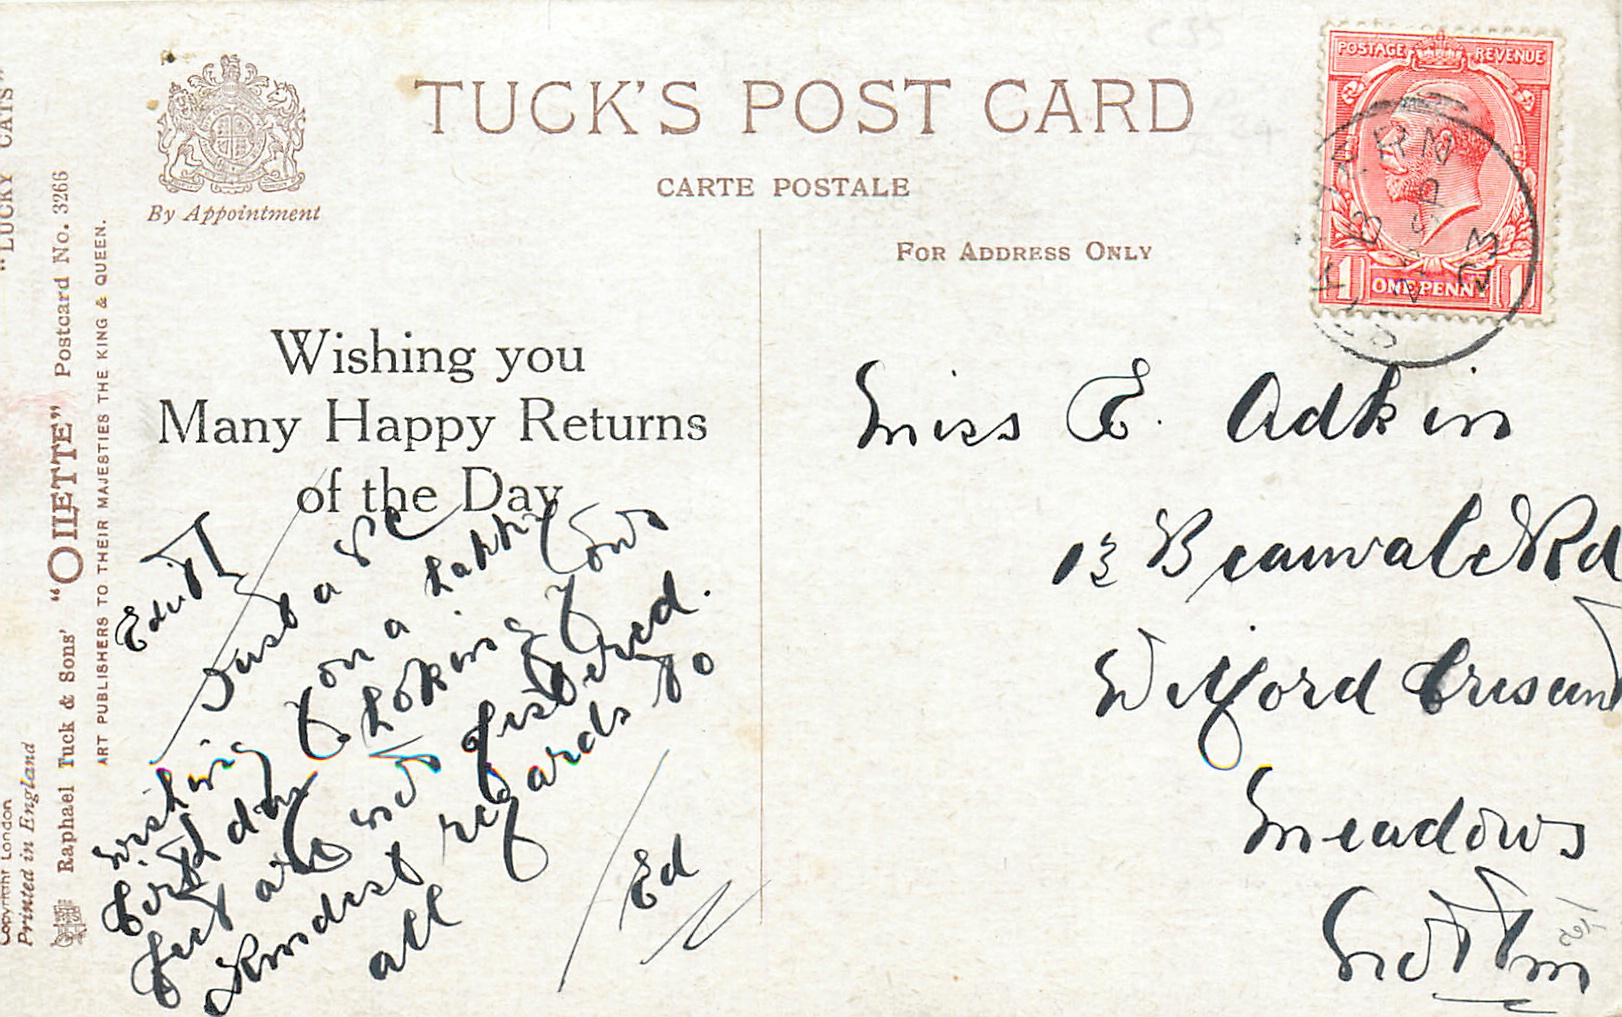 TUCK'S POST CARD
By Appointment
CARTE POSTALE
FOR ADDRESS ONLY
POSTAGE REVENUE
ONE PENNY
1 1
"LUCKY CATS"
Raphael Tuck & Sons' "OILETTE" Postcard No. 3266
ART PUBLISHERS TO THEIR MAJESTIES THE KING & QUEEN.
Copyright London
Printed in England
Wishing you
Many Happy Returns
of the Day
Edith
Just a PC
wishing you a happy
birthday hoping your
feet are not
Kindest regards to
all
Ed
Miss E. Adkin
13 Beauvale Rd
Wilford Cresent
Meadows
Nottm